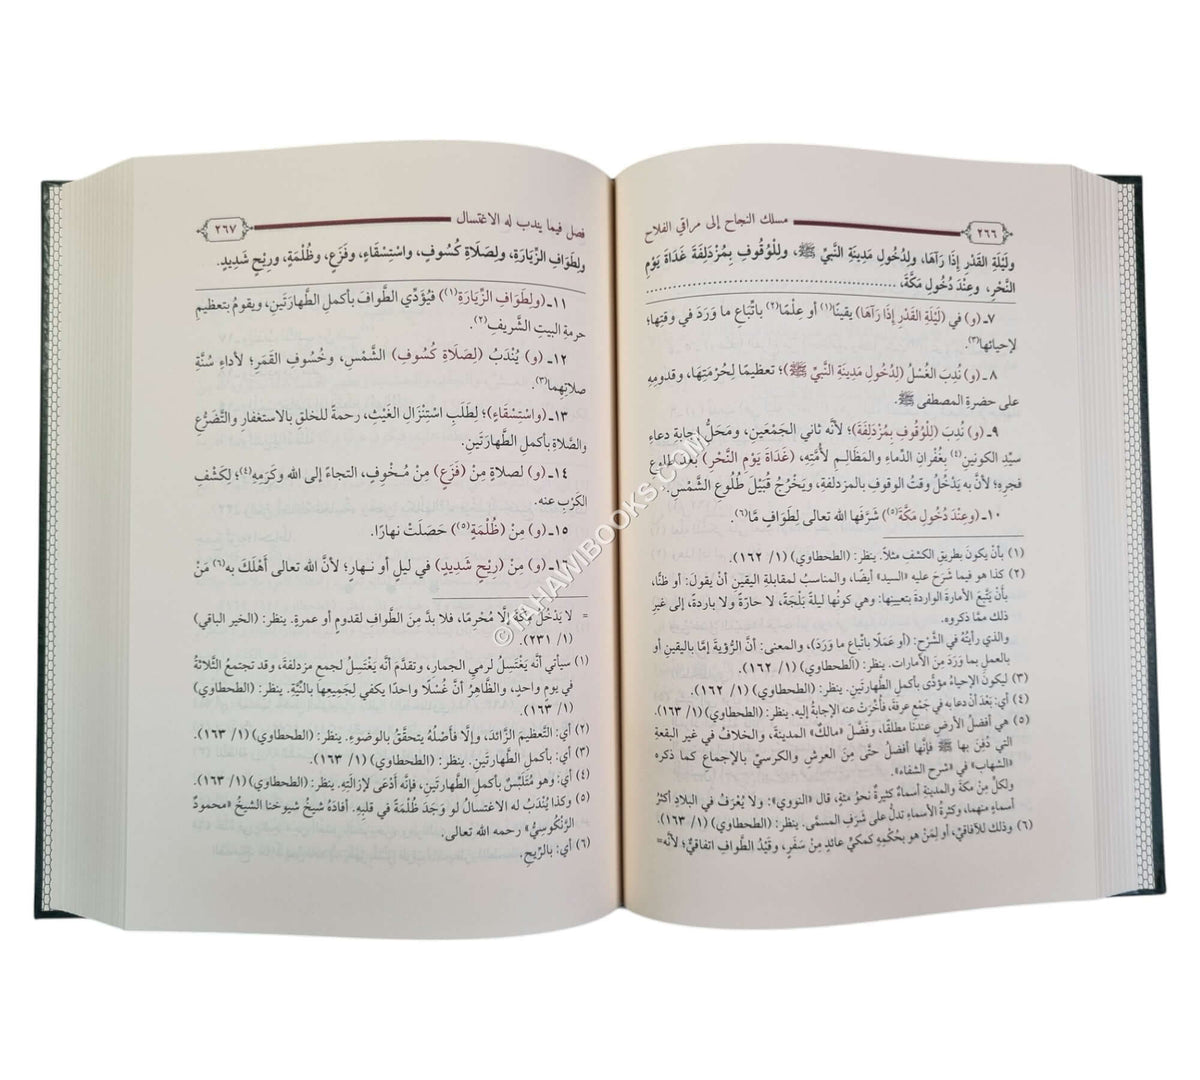 مسلك النجاح إلى مراقي الفلاح
٢٦٦
وَلَيْلَةِ القَدْرِ إِذَا رَآهَا، وَلِدُخُولِ مَدِينَةِ النَّبِيِّ ﷺ، وَلِلْوُقُوفِ بِمُزْدَلِفَةَ غَدَاةَ يَوْمِ
النَّحْرِ، وَعِنْدَ دُخُولِ مَكَّةَ، ........................................
٧ـ (وَ) في (لَيْلَةِ القَدْرِ إِذَا رَآهَا) يقينًا(١) أو عِلْمًا(٢) بِاتِّبَاعِ ما وَرَدَ في وقتِها؛
لإحيائها(٣).
٨ـ (وَ) نُدِبَ الغُسْلُ (لِدُخُولِ مَدِينَةِ النَّبِيِّ ﷺ)؛ تعظيمًا لِحُرْمَتِهَا، وقدومِهِ
على حضرةِ المصطفى ﷺ.
٩ـ (وَ) نُدِبَ (لِلْوُقُوفِ بِمُزْدَلِفَةَ)؛ لأنَّه ثاني الجَمْعَينِ، ومَحَلُّ إجابةِ دعاءِ
سيِّدِ الكونينِ(٤) بِغُفْرانِ الدِّماءِ والمَظَالِـمِ لأُمَّتِهِ، (غَدَاةَ يَوْمِ النَّحْرِ) بعدَ طلوعِ
فجرِهِ؛ لأنَّ به يَدْخُلُ وقتُ الوقوفِ بالمزدلفةِ، ويَخْرُجُ قُبَيْلَ طُلُوعِ الشَّمْسِ.
١٠ـ (وَعِنْدَ دُخُولِ مَكَّةَ(٥)) شَرَّفَها الله تعالى لِطوافٍ مَّا(٦).
(١) بأنْ يكونَ بطريقِ الكشفِ مثلًا. ينظر: (الطحطاوي) (١/ ١٦٢).
(٢) كذا هو فيما شَرَحَ عليه «السيد» أيضًا، والمناسبُ لمقابلةِ اليقينِ أنْ يقولَ: أو ظنًّا،
بأنْ يَتَّبِعَ الأماراتِ الواردةَ بتعيينِها؛ وهي كونُها ليلةً بَلْجَةً، لا حارَّةً ولا باردةً، إلى غيرِ
ذلك ممَّا ذكروه.
والذي رأيتُهُ في الشَّرْحِ: (أو عَمَلًا باتِّباعِ ما وَرَدَ)، والمعنى: أنَّ الرُّؤيةَ إمَّا باليقينِ أو
بالعملِ بما وَرَدَ مِنَ الأماراتِ. ينظر: (الطحطاوي) (١/ ١٦٢).
(٣) ليكونَ الإحياءُ مؤدًّى بأكملِ الطَّهارتَينِ. ينظر: (الطحطاوي) (١/ ١٦٢).
(٤) أي: بَعْدَ أنْ دعا به في جَمْعِ عرفةَ، فأُخِّرَتْ عنه الإجابةُ إليه. ينظر: (الطحطاوي) (١/ ١٦٣).
(٥) هي أفضلُ الأرضِ عندنا مطلقًا، وفَضَّلَ «مالكٌ» المدينةَ، والخلافُ في غيرِ البقعةِ
التي دُفِنَ بها ﷺ فإنَّها أفضلُ حتَّى مِنَ العرشِ والكرسيِّ بالإجماعِ كما ذكره
«الشهاب» في «شرح الشفاء».
ولكلٍّ مِنْ مكةَ والمدينةِ أسماءٌ كثيرةٌ نحوُ مئةٍ، قال «النووي»: ولا يُعْرَفُ في البلادِ أكثرُ
أسماءٍ منهما، وكثرةُ الأسماءِ تدلُّ على شَرَفِ المسمَّى. ينظر: (الطحطاوي) (١/ ١٦٣).
(٦) وذلك للآفاقيِّ، أو لِمَنْ هو بِحُكْمِهِ كمكيٍّ عائدٍ مِنْ سَفَرٍ، وقَيْدُ الطَّوافِ اتفاقيٌّ؛ لأنَّه=
فصل فيما يندب له الاغتسال
٢٦٧
وَلِطَوَافِ الزِّيَارَةِ، وَلِصَلَاةِ كُسُوفٍ، وَاسْتِسْقَاءٍ، وَفَزَعٍ، وَظُلْمَةٍ، وَرِيْحٍ شَدِيدٍ.
١١ـ (وَلِطَوَافِ الزِّيَارَةِ(١)) فَيُؤَدِّي الطَّوافَ بأكملِ الطَّهارَتَينِ، ويقومُ بتعظيمِ
حرمةِ البيتِ الشَّريفِ(٢).
١٢ـ (وَ) يُنْدَبُ (لِصَلَاةِ كُسُوفِ) الشَّمْسِ، وخُسُوفِ القَمَرِ؛ لأداءِ سُنَّةِ
صلاتِهِما(٣).
١٣ـ (وَاسْتِسْقَاءٍ)؛ لِطَلَبِ اسْتِنْزَالِ الغَيْثِ، رحمةً للخلقِ بالاستغفارِ والتَّضَرُّعِ
والصَّلاةِ بأكملِ الطَّهارَتَينِ.
١٤ـ (وَ) لصلاةٍ مِنْ (فَزَعٍ) مِنْ مُـخَوفٍ، التجاءً إلى الله وكَرَمِهِ(٤)؛ لِكَشْفِ
الكَرْبِ عنه.
١٥ـ (وَ) مِنْ (ظُلْمَةٍ(٥)) حَصَلَتْ نهارًا.
١٦ـ (وَ) مِنْ (رِيْحٍ شَدِيدٍ) في ليلٍ أو نـهارٍ؛ لأنَّ الله تعالى أَهْلَكَ به(٦) مَنْ
= لا يَدْخُلُ مكَّةَ إلَّا مُحْرِمًا، فلا بدَّ مِنَ الطَّوافِ لقدومٍ أو عمرةٍ. ينظر: (الخير الباقي)
(١/ ٢٣١).
(١) سيأتي أنَّه يَغْتَسِلُ لرميِ الجمارِ، وتقدَّمَ أنَّه يَغْتَسِلُ لجمعِ مزدلفةَ، وقد تجتمعُ الثَّلاثةُ
في يومٍ واحدٍ، والظَّاهرُ أنَّ غُسْلًا واحدًا يكفي لِجَميعِها بالنِّيَّةِ. ينظر: (الطحطاوي)
(١/ ١٦٣).
(٢) أي: التَّعظيمَ الزَّائدَ، وإلَّا فأصْلُهُ يتحقَّقُ بالوضوءِ. ينظر: (الطحطاوي) (١/ ١٦٣).
(٣) أي: بأكملِ الطَّهارتَينِ. ينظر: (الطحطاوي) (١/ ١٦٣).
(٤) أي: وهو مُتَلَبِّسٌ بأكملِ الطَّهارتَينِ، فإنَّه أَدْعَى لإزالتِهِ. ينظر: (الطحطاوي) (١/ ١٦٣).
(٥) وكذا يُنْدَبُ له الاغتسالُ لو وَجَدَ ظُلْمَةً في قلبِهِ. أفادَهُ شيخُ شيوخنا الشيخُ «محمودٌ
الرَّنْكُوسِيُّ» رحمه الله تعالى.
(٦) أي: بالرِّيحِ.
© TAHAWIBOOKS.COM